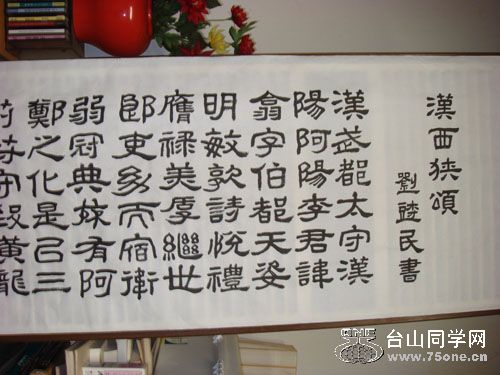 漢西狭頌
劉民書
漢武都太守漢
陽阿陽李君諱
翕字伯都天姿
明敏敦詩悅禮
膺祿美厚繼世
郎吏幼而宿衛
弱冠典城有阿
鄭之化是以三
符守致黃龍
台山同学网
www.75one.cn